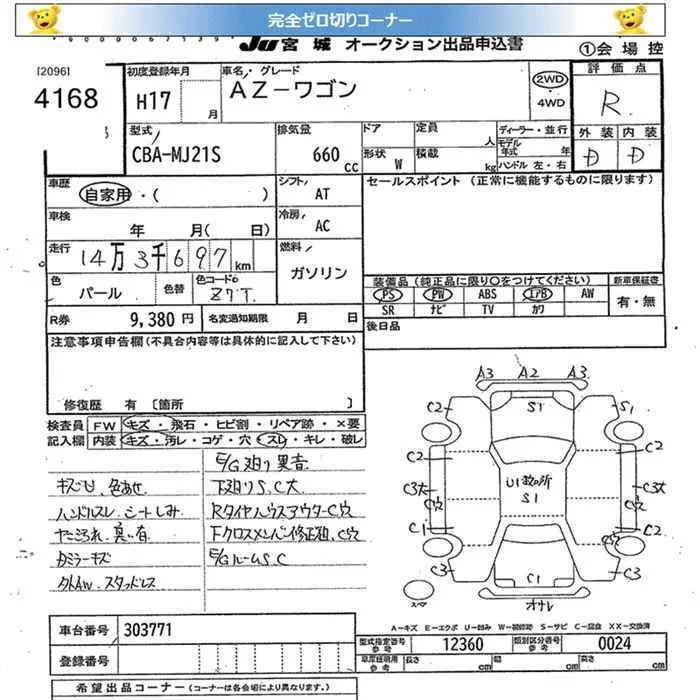 完全ゼロ切りコーナー
JU 宮城 オークション出品申込書 ①会場控
[2096]
4168
初度登録年月
H17 月
車名・グレード
AZ-ワゴン
2WD
・
4WD
評価点
R
外装 内装
D D
型式
CBA-MJ21S
排気量
660 cc
ドア
形状 W
定員 人
積載 kg
ディーラー・並行
モデル年式 年
ハンドル 左・右
車歴
自家用・( )
シフト
AT
セールスポイント (正常に機能するものに限ります)
車検
年 月( 日)
冷房
AC
走行
14万3千697km
燃料
ガソリン
色
パール
色替
色コードNo
Z7T
装備品(純正品に限り○をつけてください)
PS PW ABS エアB AW
SR ナビ TV カワ
新車保証書
有・無
R券 9,380円
名変通知期限 月 日
後日品
注意事項申告欄(不具合内容等は具体的に記入して下さい)
修復歴 有 [箇所 ]
検査員 FW キズ・飛石・ヒビ割・リペア跡・×要
記入欄 内装 キズ・汚レ・コゲ・穴・スレ・キレ・破レ
E/G廻り異音
キズU、色あせ
下廻りS、C大
ハンドルスレ シートしみ
RタイヤハウスアウターC穴
ヤニ汚れ 臭い有
Fクロスメンバー修正、C穴
カミラーキズ
E/GルームS、C
外AW スタッドレス
A3 A2 A3
S1
C2 S1
C2 C2
U1数ヶ所
S1
C3大 C穴 C穴 C3大
C1 C2
C穴 C穴
C3 C1 C3
スペア
オナレ
A-キズ E-エクボ U-凹み W-補修跡 S-サビ C-腐食 XX-交換済
車台番号 303771
型式指定番号 参考 12360 類別区分番号 参考 0024
登録番号
車庫証明用 参考 長さ cm 幅 cm 高さ cm
希望出品コーナー(コーナーは各会場により異なります。)